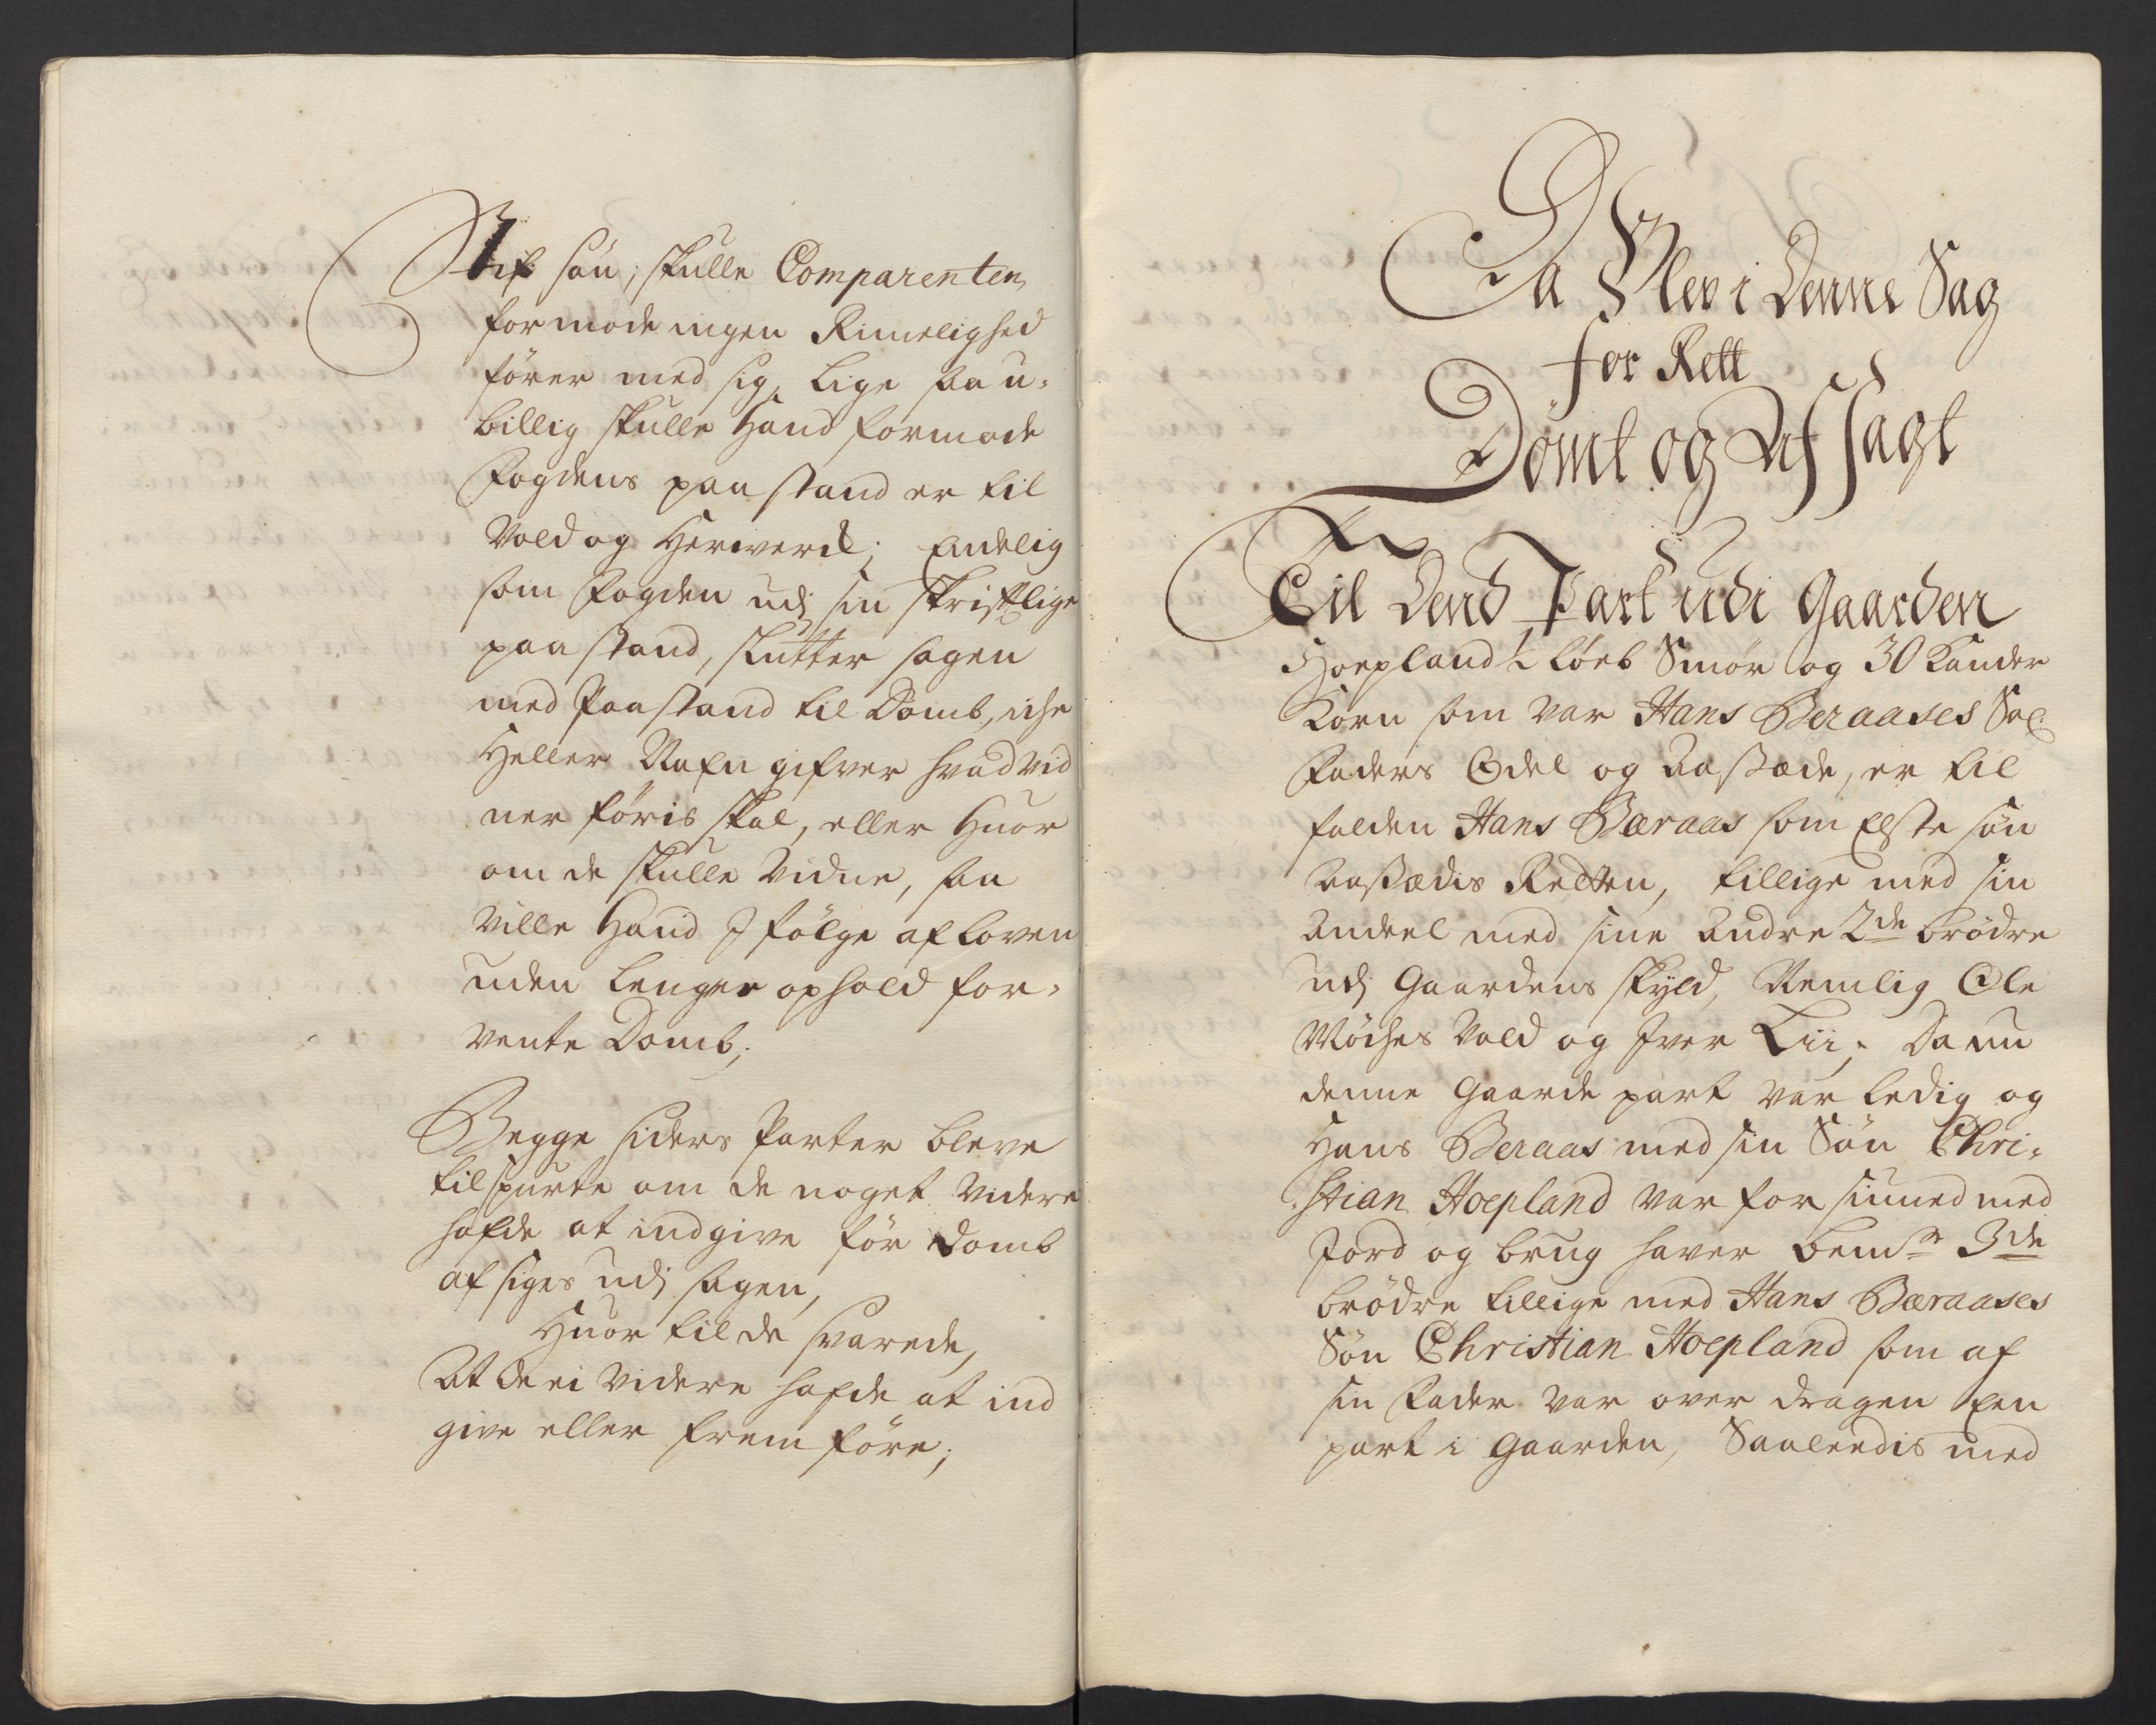 Stif søn, skulle Comparenten
formode ingen Rimelighed
fører med sig, lige saa u-
billig skulle Hand formode
Fogdens paastand er til
Vold og Herwerck; Endelig
som Fogden udj sin skrifftlige
paastand, slutter sagen
med Paastand til Domb, iche
Heller Nafn gifver hvad vid
ner føris skal, eller Huor
om de skulle vidne, saa
ville Hand I følge af loven
uden lenger ophold for-
vente Domb;
Begge siders Parter bleve
tilspurte om de noget videre
hafde at indgive før Domb
afsiges udj sagen,
Huor til de svarede,
At de ei videre hafde at ind
give eller frem føre;
Da Blev i Denne Sag
for Rett
Dømt og Afsagt
Til Dend Part udi Gaarden
Hoepland ½ Løeb Smør og 30 Kander
Korn som var Hans Beraases Sal:
Faders Odel og Aasæde, er til
falden Hans Bæraas som Elste søn
Aasædis Retten, tillige med sin
Andeel med sine Andre 2de brødre
udj Gaardens skyld, Nemlig Ole
Møches Vold og Iver Lii; Da nu
denne Gaarde part var ledig og
Hans Beraas med sin Søn Chri-
stian Hoepland var forsiuned med
Jord og brug haver bemte 3de
brødre tillige med Hans Bæraases
Søn Christian Hoepland som af
sin Fader var over dragen Een
part i Gaarden, Saaleedis med